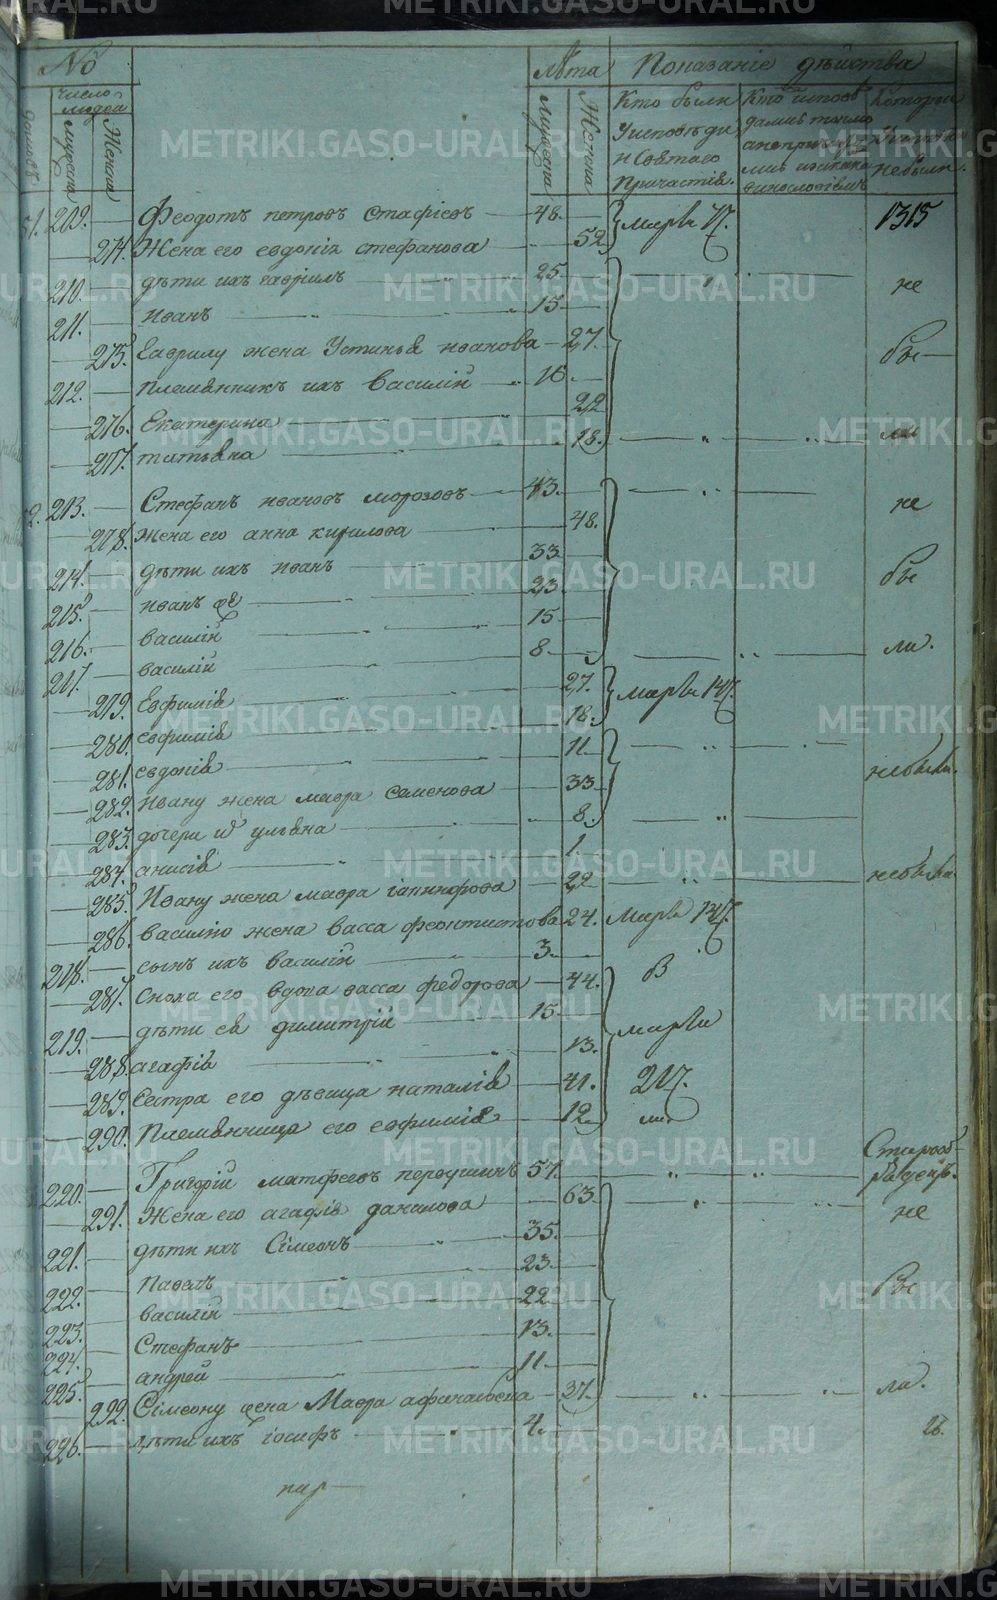 № Лѣта Показаніе дѣйства
домовъ число людей мужеска Женска Мужеска Женска Кто были Уисповѣди и святаго Причастія. Кто исповѣдались токмо а непричащались Которые исповѣди небыли.
51. 209. — Феодотъ петровъ стафіевъ — 48. — марта 17. 1315
— 274. Жена его евдокія стефанова — 52
210. — дѣти ихъ гаврилъ — 25. — не
211. — иванъ — 15 —
— 275. Гаврилу жена Устинья иванова — 27. бы—
212. — племянникъ ихъ василій — 16. —
— 276. Екатерина 22
— 277. татьяна — 18. ли
2. 213. — Стефанъ ивановъ морозовъ — 73. — не
— 278. жена его анна кирилова 48.
214. — дѣти ихъ иванъ — 33 — бы
215. — иванъ же 23 —
216. — василій 15 — ли.
217. — василій 8 —
— 279. Евфимія 27. марта 14.
— 280. евфимія 18.
— 281. евдокія — 11 небыли.
— 282. ивану жена мавра семенова — 33
— 283. дочери и ульяна — 8.
— 284. анисія 1.
— 285. Ивану жена мавра никифорова — 22 небыла
— 286. василію жена васса феоктистова 24. Марта 13.
218. — сынъ ихъ василій — 3. —
— 287. сноха его вдова васса федорова — 44. В
219. — дѣти ея димитрій — 15. — марта
— 288. агафія 13.
— 289. Сестра его дѣвица наталія — 41. 21.
— 290. Племянница его евфимія — 12
220. — Григорій матфеевъ первушинъ 57. — Старообрядецъ.
— 291. Жена его агафія данилова — 63. не
221. — дѣти ихъ Сімеонъ — 35. —
222. — Павелъ 23. — бы
223. — василій 22 —
224. — Стефанъ 13. —
225. — андрей 11. —
— 292. Сімеону жена Мавра афанасьева — 37. ли.
226. — дѣти ихъ іосифъ — 4. — 26.
METRIKI.GASO-URAL.RU